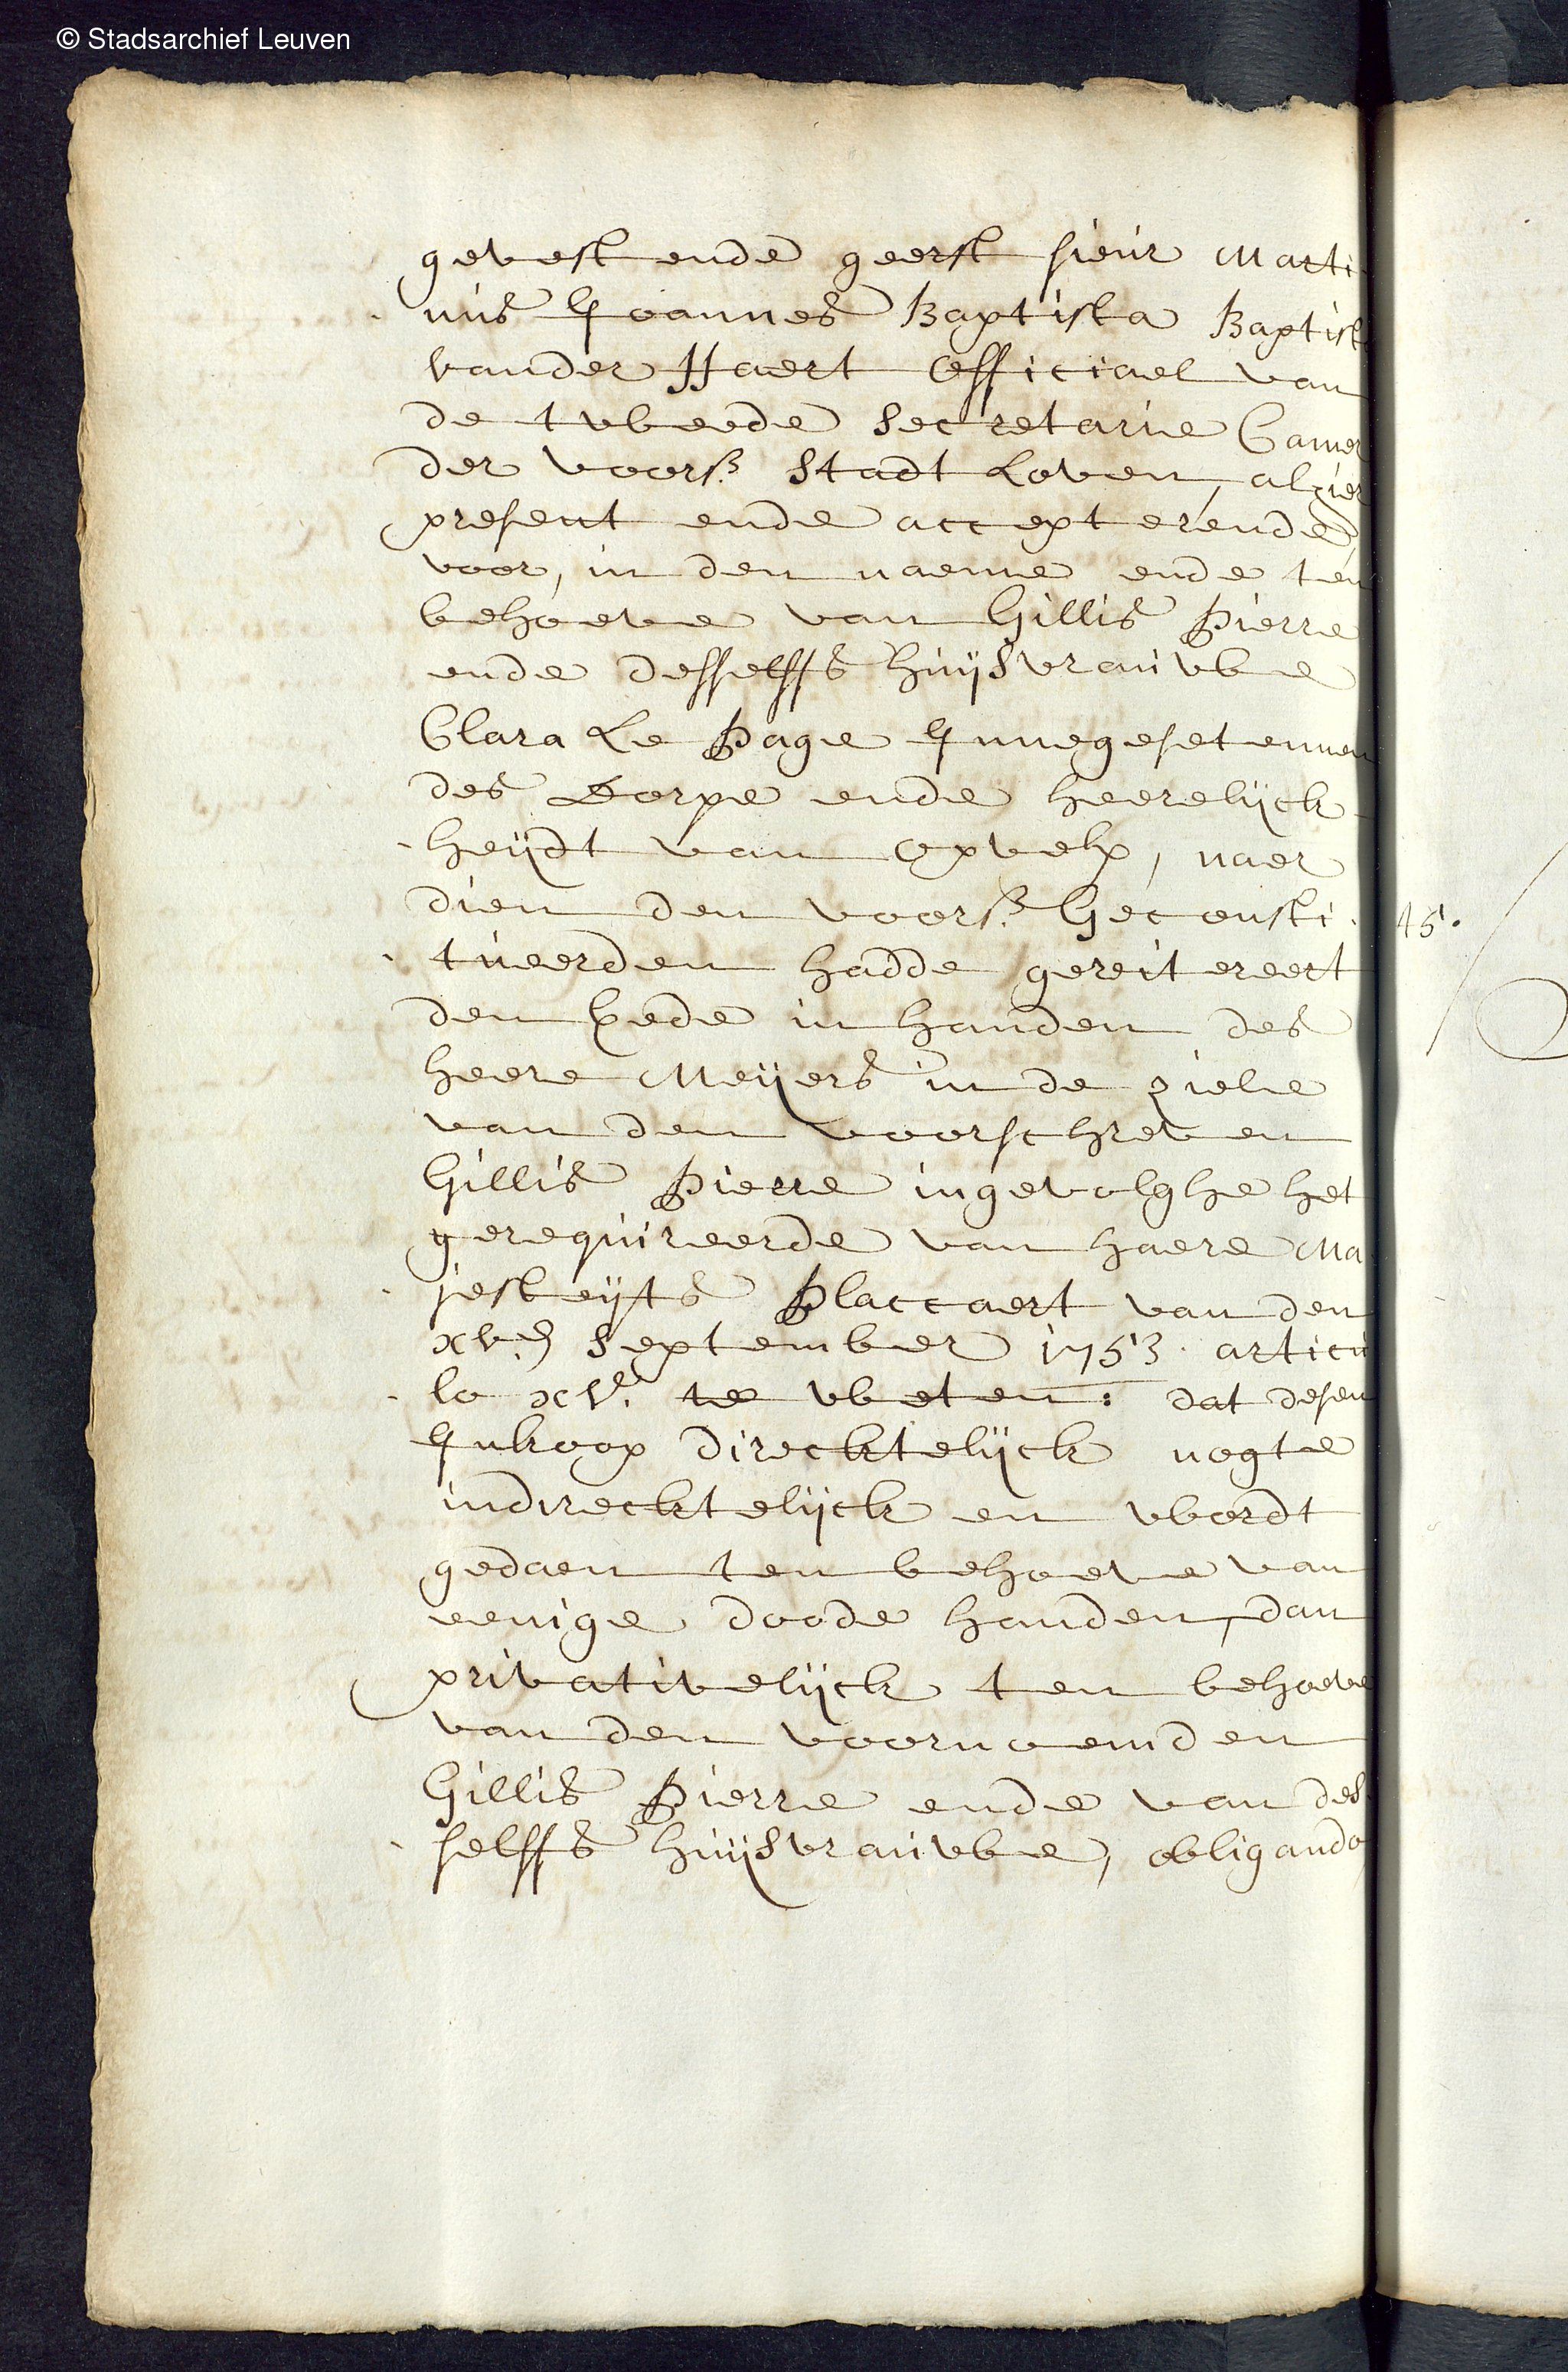 © Stadsarchief Leuven
gevest ende geerft sieur Marti
nus Joannes Baptista Baptist
vander Haert Officiael van
de tweede Secretarie Camer
der voors. Stadt Loven, alhier
present ende accepterende,
voor, in den naeme ende ten
behoeve van Gillis Pierre
ende desselffs huijsvrauwe
Clara Le Page Innegesetennen
des Dorpe ende heerelijck
heijdt van Opvelp, naer
dien den voors. Geconsti
tueerden hadde gereitereert
den Eede in handen des
heere Meijers in de ziele
van den voorschreven
Gillis Pierre ingevolghe het
gerequireerde van haere Ma
jesteijts Placcaert van den
xv.en September 1753. articu
lo xv. te weten: dat desen
Inkoop direcktelijck nogte
indirecktelijck en wordt
gedaen ten behoeve van
eenige doode handen, dan
privativelijck ten behoeve
van den voornoemden
Gillis Pierre ende van des
selffs huijsvrauwe, obligando